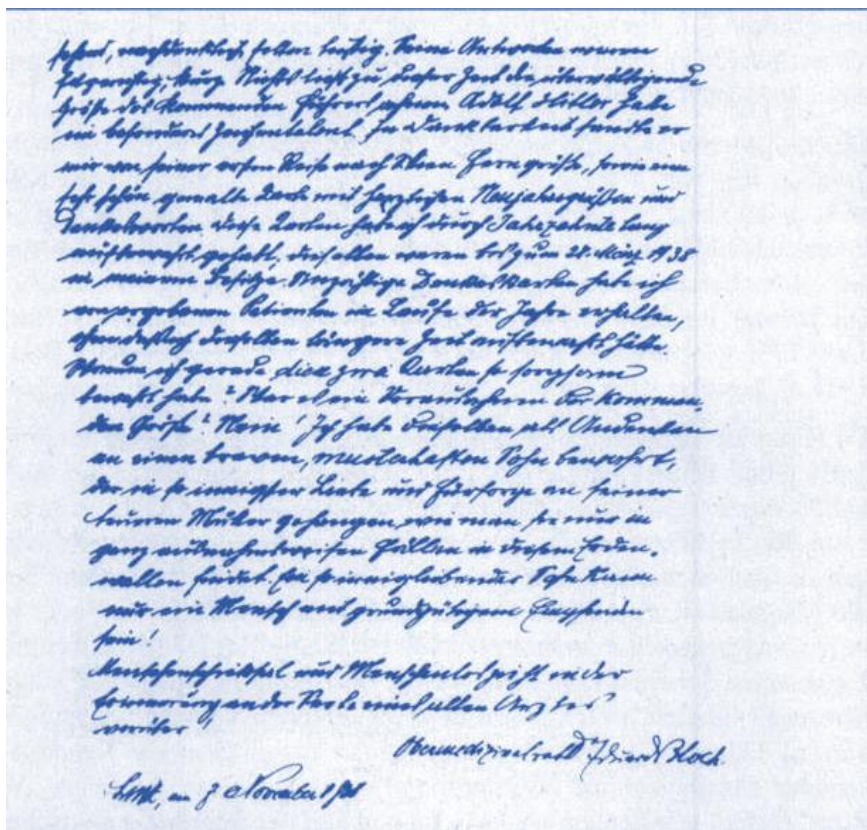 schend, nachdenklich, selten lustig. Seine Antworten waren
kurz. Nichts ließ zu dieser Zeit die überwältigende
Größe des kommenden Führers ahnen. Adolf Hitler habe
ein besonderes Zeichentalent. In Dankbarkeit sandte er
mir von seiner ersten Reise nach Wien Herzgrüße, sowie eine
sehr schön gemalte Karte mit herzlichen Neujahrsgrüßen und
Dankesworten. Diese Karten habe ich durch Jahrzehnte lang
aufbewahrt gehabt, dieselben waren bis zum 28. März 1938
in meinem Besitze. Dankeskarten habe ich
von ergebenen Patienten im Laufe der Jahre erhalten,
ohne daß ich dieselben längere Zeit aufbewahrt hätte.
Warum ich gerade diese zwei Karten so sorgsam
bewahrt habe? War es ein Vorausahnen der kommen-
den Größe? Nein! Ich habe dieselben als Andenken
an einen braven, musterhaften Sohn bewahrt,
der in so inniger Liebe und Fürsorge an seiner
teuren Mutter gehangen, wie man sie nur in
ganz ausnahmsweisen Fällen in diesem Erden-
wallen findet. Ein so innigliebender Sohn kann
nur ein Mensch mit grundgütigem Empfinden
sein.
Menschenschicksal und Menschenleid zieht in der
Erinnerung an der Seele eines alten Arztes
vorüber.
Obermedizinalrat Dr Eduard Bloch
Linz, am 7. November